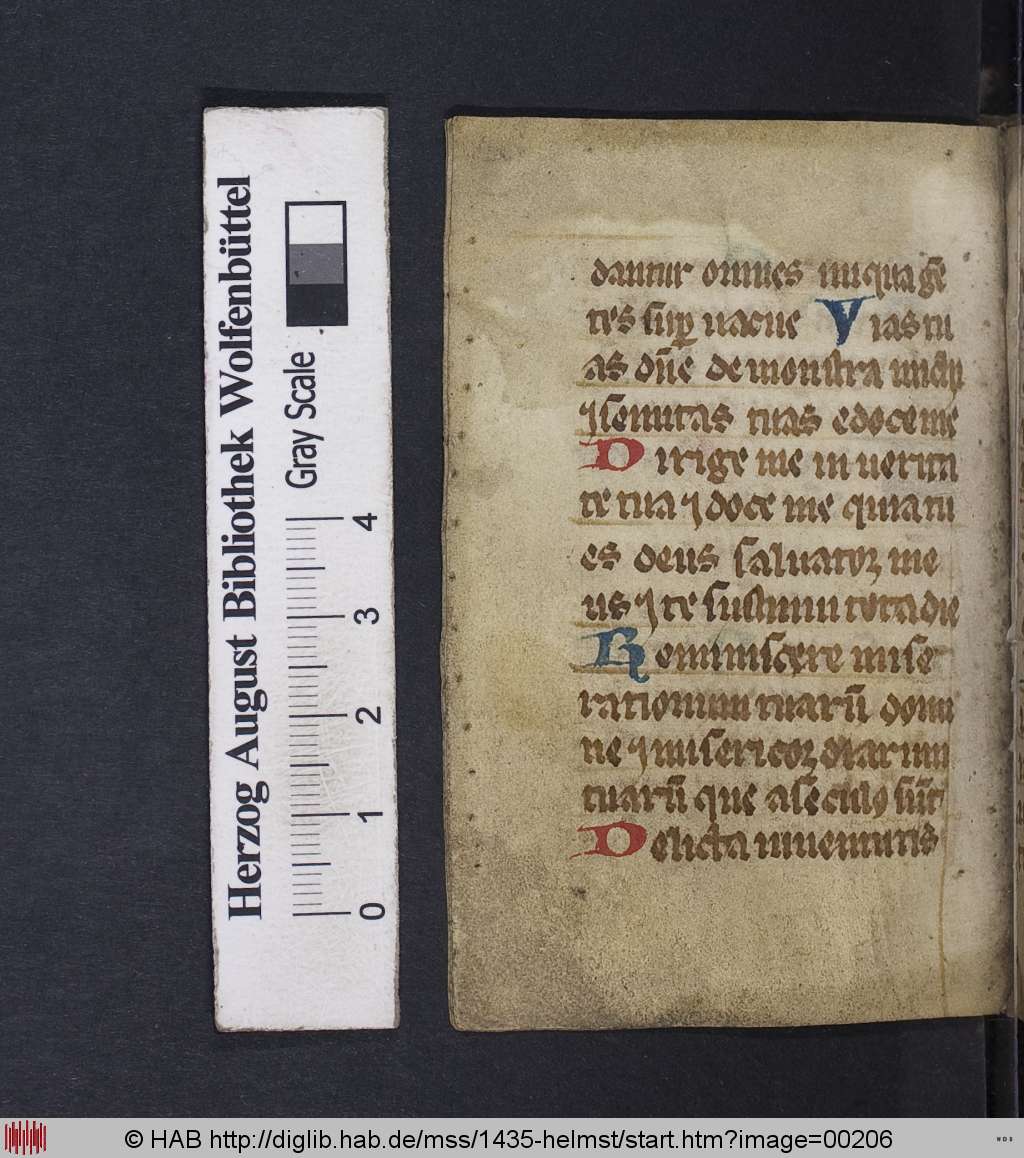 dantur omnes iniqua gẽ
tes suꝑ vacue Vias tu
as dñe demonstra michi
⁊ semitas tuas edoce me
Dirige me in verita
te tua ⁊ doce me quia tu
es deus saluator me
us ⁊ te sustinui tota die
Reminiscere mise
rationum tuarũ domi
ne ⁊ misericordiarum
tuarũ que a seculo sũt
Delicta iuuentutis
Herzog August Bibliothek Wolfenbüttel
Gray Scale
0 1 2 3 4
© HAB http://diglib.hab.de/mss/1435-helmst/start.htm?image=00206